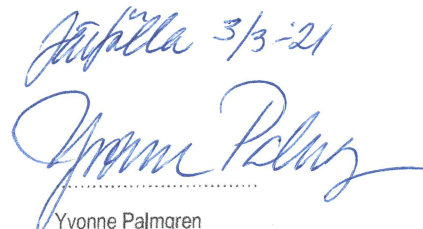 Järfälla 3/3-21
Yvonne Palmg
Yvonne Palmgren